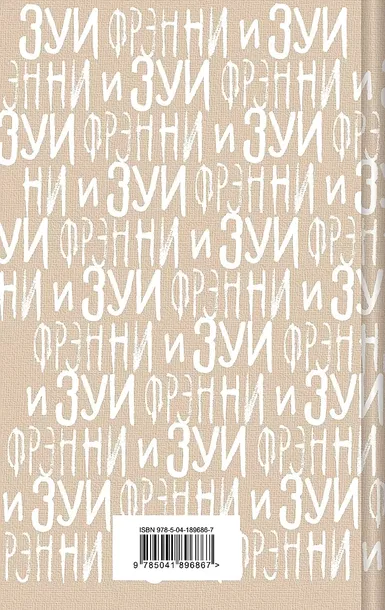 ЗУИ ФРЭННИ и ЗУИ
ЭННИ и ЗУИ ФРЭННИ
ЗУИ ФРЭННИ и ЗУИ
НИ и ЗУИ ФРЭННИ
УИ ФРЭННИ и ЗУИ
НИ и ЗУИ ФРЭННИ
ФРЭННИ и ЗУИ
и ЗУИ ФРЭННИ и
ФРЭННИ и ЗУИ
и ЗУИ ФРЭННИ и
РЭННИ ЗУИ
ISBN 978-5-04-189686-7
9 785041 896867 >